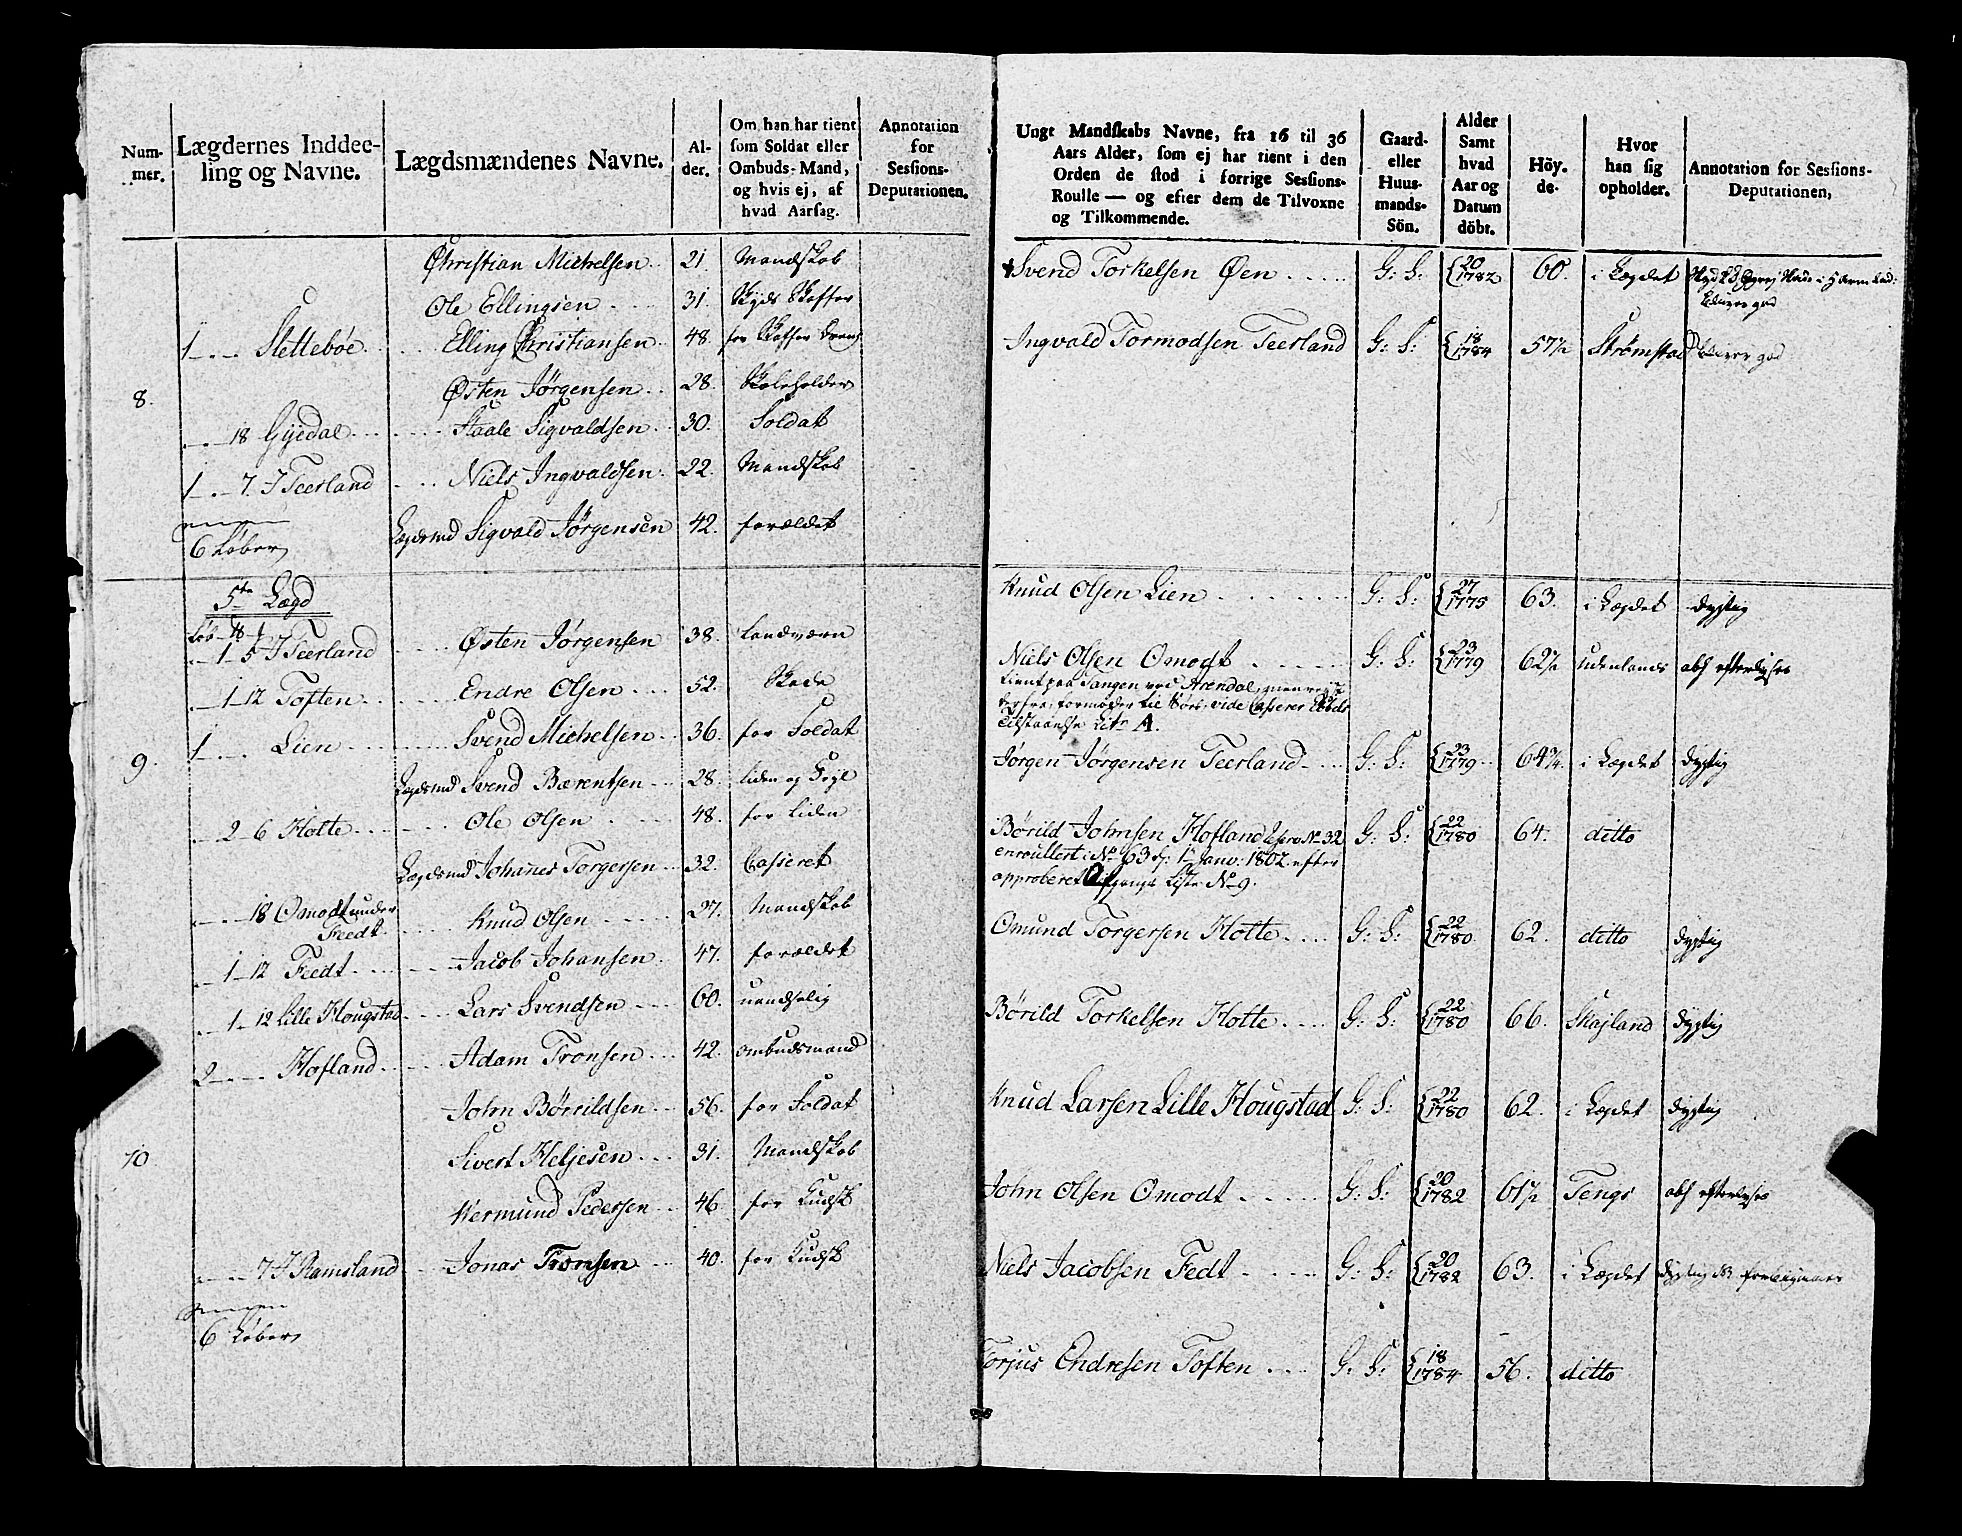 Num-
mer.
Lægdernes Inddee-
ling og Navne.
Lægdsmændenes Navne.
Al-
der.
Om han har tient
som Soldat eller
Ombuds-Mand,
og hvis ej, af
hvad Aarsag.
Annotation
for
Sessions-
Deputationen.
Christian Michelsen 21. Mandskab
Ole Ellingsen 31. Skyds Skaffer
1 Slettebøe Elling Christiansen 48. for Skaffer
8. Østen Jørgensen 28. Skoleholder
18 Gyedal Staale Sigvaldsen 30. Soldat
1 7. I Teerland Niels Ingvaldsen 22. Mandskab
Lægdsmd Sigvald Jørgensen 42. forældet
6 Løber
5te Lægd
1 5 I Teerland Østen Jørgensen 38. Landværn
1 12 Toften Endre Olsen 52. Skade
1 Lien Svend Michelsen 36. for Soldat
9. Lægdsmd Svend Bærentsen 28. liden og
2 6 Hotte Ole Olsen 48. for liden
Lægdsmd Johanes Torgersen 32. Casseret
18 Omodt under
Feedt Knud Olsen 27. Mandskab
1 12 Fedt Jacob Johansen 47. forældet
1 12 Lille Hougstad Lars Svendsen 60. uandselig
2 Hofland Adam Tronsen 42. ombudsmand
John Børildsen 56. for Soldat
10 Sivert Heljesen 31. Mandskab
Wermund Pedersen 46. for Kudsk
7 I Ramsland Jonas Tronsen 40. for Kudsk
6 Løber
Ungt Mandskabs Navne, fra 16 til 36
Aars Alder, som ej har tient i den
Orden de stod i forrige Sessions-
Roulle — og efter dem de Tilvoxne
og Tilkommende.
Gaard-
eller
Huus-
mands-
Sön.
Alder
Samt
hvad
Aar og
Datum
döbt.
Höy-
de.
Hvor
han sig
opholder.
Annotation for Sessions-
Deputationen,
Svend Torkelsen Øen G: S: 20 1782 60. i Lægdet
Ingvald Tormodsen Teerland G: S: 18 1784 57½ Strømstad
Knud Olsen Lien G: S: 27 1775 63. i Lægdet dygtig
Niels Olsen Omodt G: S: 23 1779 62½ udenlands abs efterlyses
tient paa Tangen ved Arendal,
derfra, formoder til Søes, vide
tilstaaelse Litr A.
Jørgen Jørgensen Teerland G: S: 23 1779 64¾ i Lægdet dygtig
Børild Johnsen Hofland No 32 G: S: 22 1780 64. ditto
enroullert i No 63 1 Janv: 1802 efter
approberet Afgangs Liste No 9.
Omund Torgersen Hotte G: S: 22 1780 62. ditto dygtig
Børild Torkelsen Hotte G: S: 22 1780 66. Skajland dygtig
Knud Larsen Lille Hougstad G: S: 22 1780 62. i Lægdet dygtig
John Olsen Omodt G: S: 20 1782 61½ Tengs abs efterlyses
Niels Jacobsen Fedt G: S: 20 1782 63. i Lægdet dygtig
Torjus Endresen Toften G: S: 18 1784 56. ditto